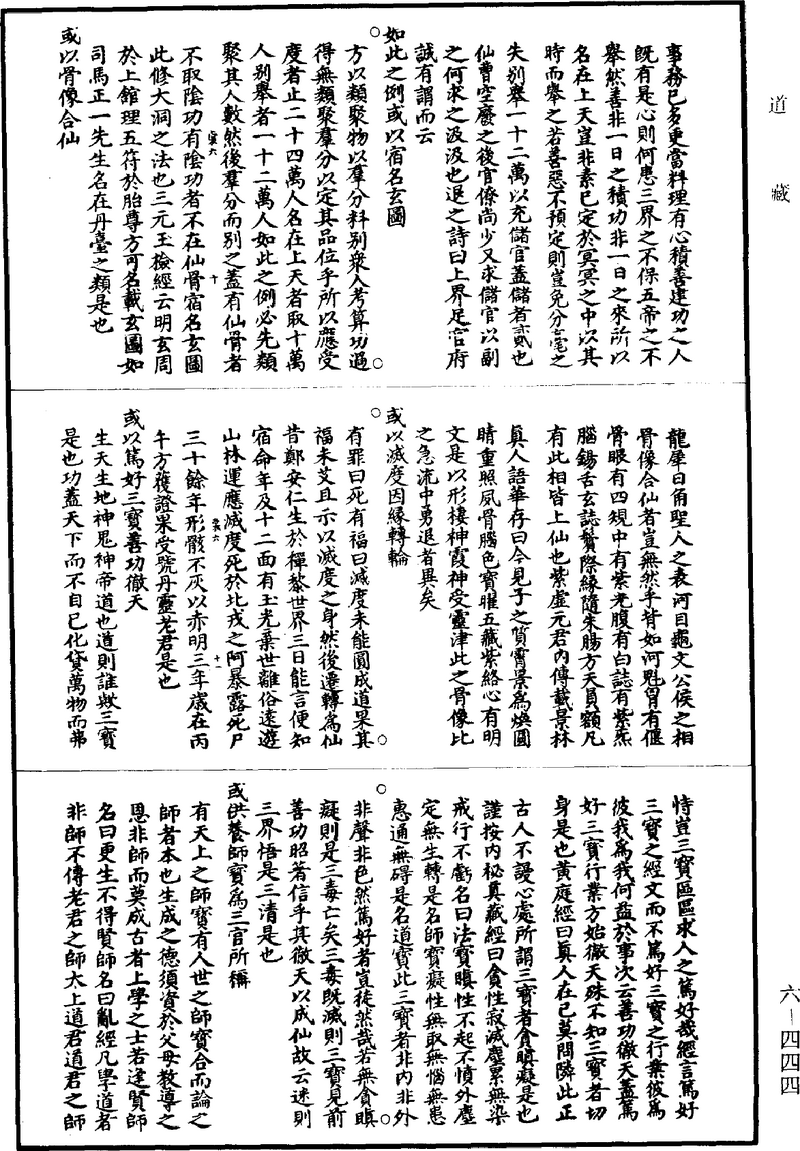 道藏
事務已多更當料理有心積善建功之人
既有是心則何患三界之不保五帝之不
舉然善非一日之積功非一日之來所以
名在上天豈非素已定於冥冥之中以其
時而舉之若善惡不預定則豈免分毫之
失別舉一十二萬以充儲官蓋儲者貳也
仙曹空廢之後官僚尚少又求儲官以副
之何求之汲汲也退之詩曰上界足官府
誠有謂而云
如此之例或以宿名玄圖
方以類聚物以羣分料別衆人考算功過
得無類聚羣分以定其品位乎所以應受
度者止二十四萬人名在上天者取十萬
人別舉者一十二萬人如此之例必先類
聚其人數然後羣分而別之蓋有仙骨者
寅六
十
不取陰功有陰功者不在仙骨宿名玄圖
此修大洞之法也三元玉檢經云明玄周
於上館理五符於胎尊方可名載玄圖如
司馬正一先生名在丹臺之類是也
或以骨像合仙
龍犀日角聖人之表河目龜文公侯之相
骨像合仙者豈無然乎背如河魁胷有偃
骨眼有四規中有紫光腹有白誌有紫炁
腦錫舌玄誌鬢際緣隨朱腸方天員額凡
有此相皆上仙也紫虛元君內傳載景林
真人語華存曰今見子之質霄景爲煥圓
晴重照鳳骨腦色寶曜五藏紫絡心有明
文是以形棲神霞神受靈津此之骨像比
之急流中勇退者異矣
或以滅度因緣轉輪
有罪曰死有福曰滅度未能圓成道果其
福未艾且示以滅度之身然後遷轉爲仙
昔鄭安仁生於禪黎世界三日能言便知
宿命年及十二面有玉光棄世離俗遠遊
山林運應滅度死於北戎之阿暴露死尸
寅六
十一
三十餘年形骸不灰以赤明三年歲在丙
午方獲證果受號丹靈老君是也
或以篤好三寶善功徹天
生天生地神鬼神帝道也道則誰歟三寶
是也功蓋天下而不自已化貸萬物而弗
恃豈三寶區區求人之篤好哉經言篤好
三寶之經文而不篤好三寶之行業彼爲
彼我爲我何益於事次云善功徹天蓋篤
好三寶行業方始徹天殊不知三寶者切
身是也黃庭經曰真人在已莫問隣此正
古人不謾心處所謂三寶者貪瞋癡是也
謹按內秘真藏經曰貪性寂滅塵累無染
戒行不虧名曰法寶瞋性不起不憤外塵
定無生轉是名師寶癡性無取無惱無患
惠通無礙是名道寶此三寶者非內非外
非聲非色然篤好者豈徒然哉若無貪瞋
癡則是三毒亡矣三毒既滅則三寶見前
善功昭著信乎其徹天以成仙故云迷則
三界悟是三清是也
或供養師寶爲三官所稱
有天上之師寶有人世之師寶合而論之
師者本也生成之德須資於父母教導之
恩非師而莫成古者上學之士若逢賢師
名曰更生不得賢師名曰亂經凡學道者
非師不傳老君之師太上道君道君之師
六—四四四